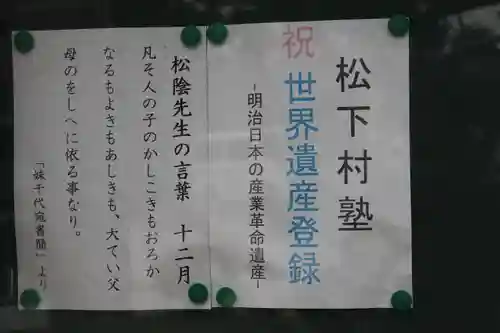 松下村塾
祝
世界遺産登録
-明治日本の産業革命遺産-
松陰先生の言葉 十二月
凡そ人の子のかしこきもおろか
なるもよきもあしきも、大てい父
母のをしへに依る事なり。
「妹千代宛書簡」より